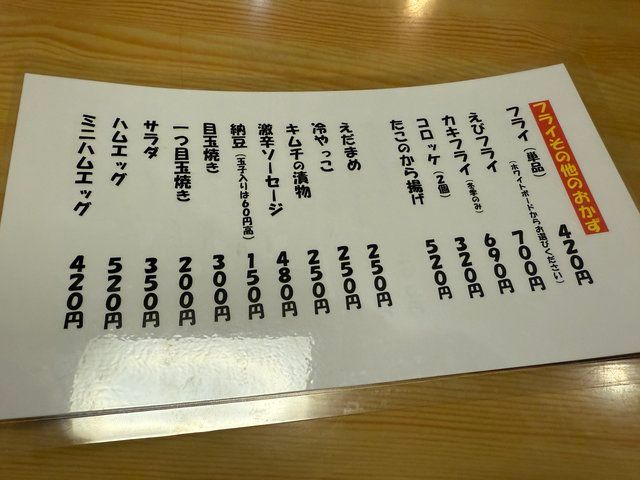 フライその他のおかず
フライ(単品)(ホワイトボードからお選びください) 420円
えびフライ 700円
カキフライ(冬季のみ) 690円
コロッケ(2個) 320円
たこのから揚げ 520円
えだまめ 250円
冷やっこ 250円
キムチの漬物 250円
激辛ソーセージ 480円
納豆(玉子入りは60円高) 150円
目玉焼き 300円
一つ目玉焼き 200円
サラダ 350円
ハムエッグ 520円
ミニハムエッグ 420円